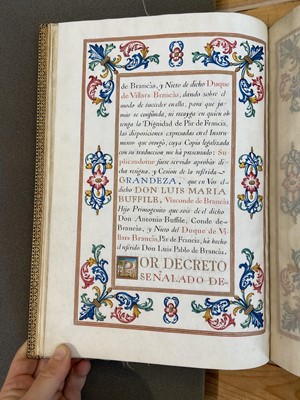 de Brancàs, y Nieto de dicho Duque
de Villars Brancàs, dando sobre el
modo de suceder en ella, para que ja-
mas se confunda, ni recayga en quien ob-
tenga la Dignidad de Pàr de Francia,
las disposiciones expresadas en el Instru-
mento que otorgó, cuya Copia legalizada
con su traduccion me há presentado: Su-
plicandome fuese servido aprobár di-
cha resigna, y Cesion de la referida
GRANDEZA, que en Vos el
dicho DON LUIS MARIA
BUFFILE, Visconde de Brancàs
Hijo Primogenito que sois de el dicho
Don Antonio Buffile, Conde de
Brancàs, y Nieto del Duque de Vi-
llars Brancàs, Pàr de Francia, há hecho
el referido Don Luis Pablo de Brancàs.
POR DECRETO
SEÑALADO DE-